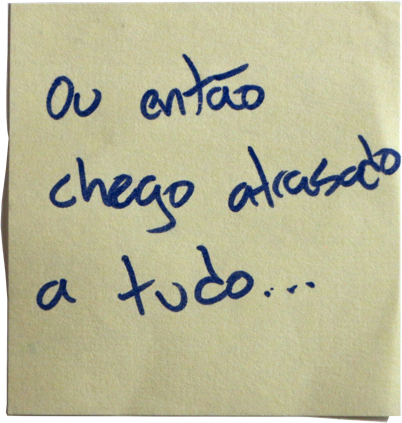 Ou então
chego atrasado
a tudo...